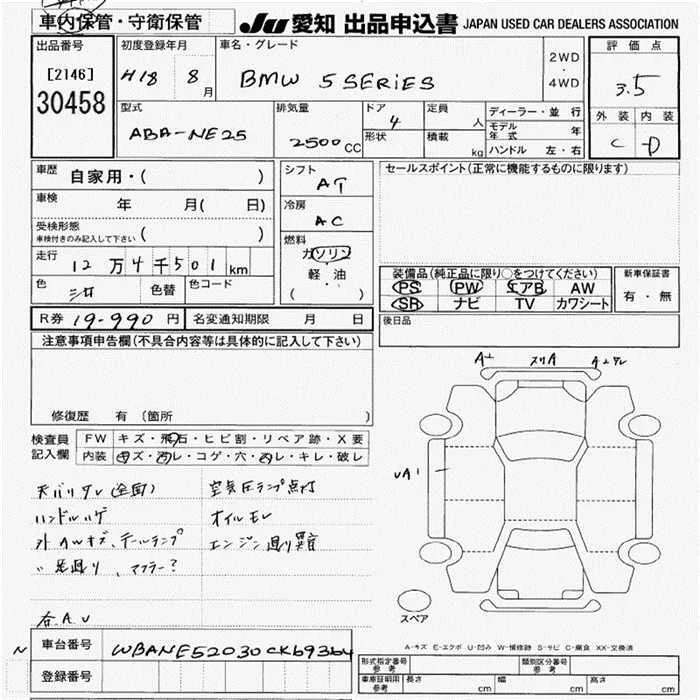 車内保管・守衛保管
JU 愛知 出品申込書 JAPAN USED CAR DEALERS ASSOCIATION
出品番号
[2146]
30458
初度登録年月
H18 8月
車名・グレード
BMW 5 SERIES
2WD
・
4WD
評価点
3.5
外装 内装
C D
型式
ABA-NE25
排気量
2500CC
ドア
4
形状
定員
人
積載
kg
ディーラー・並行
モデル年式 年
ハンドル 左・右
車歴
自家用・( )
車検
年 月( 日)
受検形態
車検付きのみ記入して下さい ( )
走行
12万4千501km
色
色替
色コード
シフト
AT
冷房
AC
燃料
ガソリン
軽・油
( ・ )
セールスポイント(正常に機能するものに限ります)
装備品(純正品に限り○をつけてください)
PS PW エアB AW
SR ナビ TV カワシート
新車保証書
有・無
R券 19-990円
名変通知期限 月 日
後日品
注意事項申告欄(不具合内容等は具体的に記入して下さい)
修復歴 有 (箇所 )
検査員記入欄
FW キズ・飛石・ヒビ割・リペア跡・X要
内装 キズ・汚レ・コゲ・穴・スレ・キレ・破レ
空気圧ランプ点灯
オイルモレ
エンジン廻り異音
天バリタレ(全面)
ハンドルハゲ
外AWキズ、テールランプ
〃 足廻り、マフラー?
A
UA1
スペア
A-キズ E-エクボ U-凹み W-補修跡 S-サビ C-腐食 XX-交換済
車台番号
WBANE52030CK69364
登録番号
N
形式指定番号
参考
類別区分番号
参考
車庫証明用
参考
長さ cm
幅 cm
高さ cm